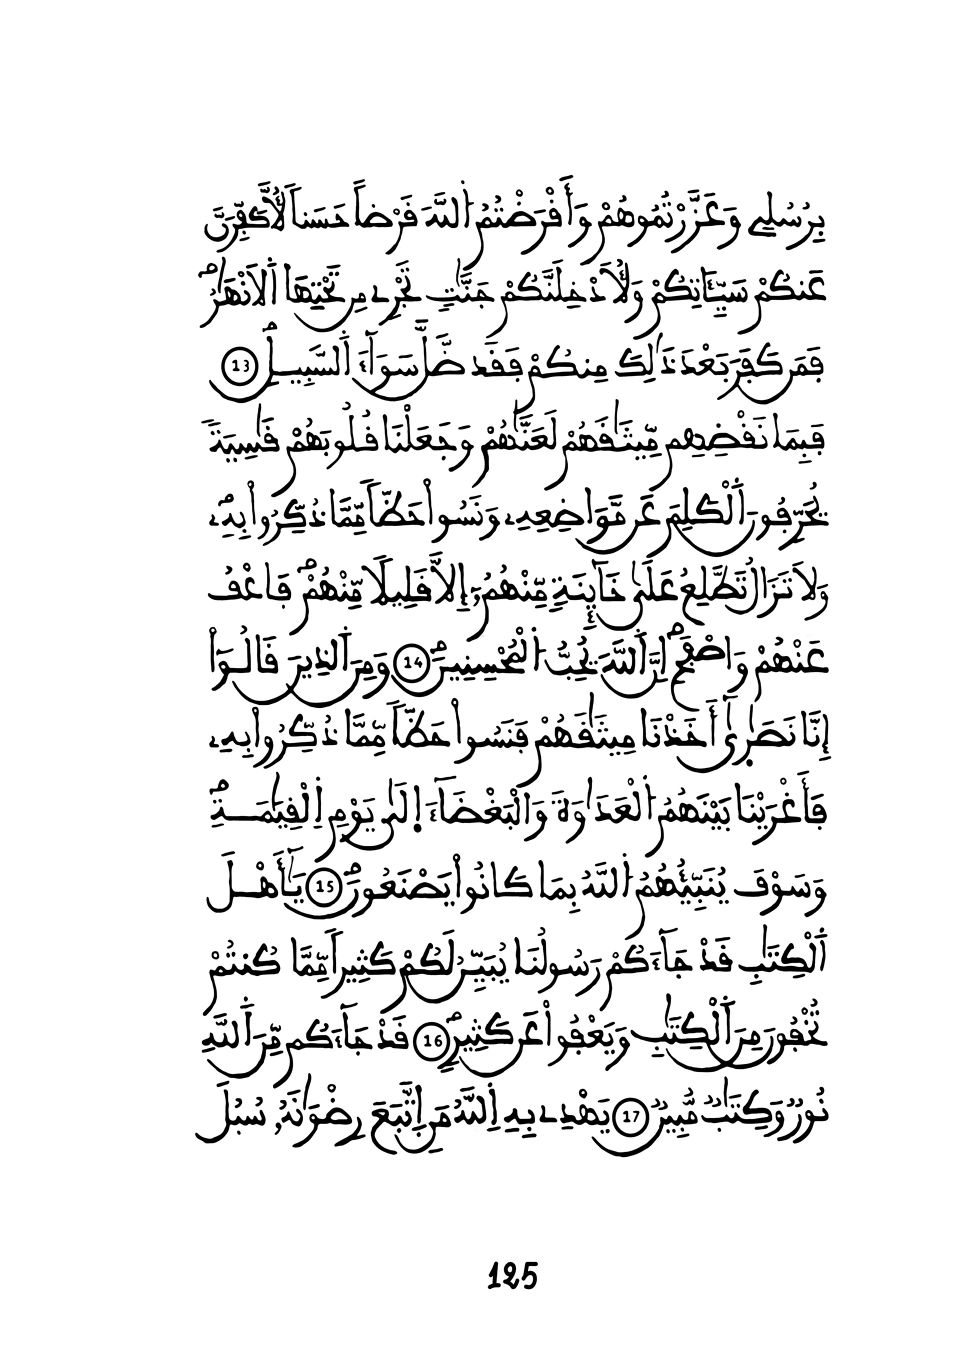 بِرُسُلِے وَعَزَّرْتُمُوهُمْ وَأَقْرَضْتُمُ اُللَّهَ قَرْضاً حَسَناً لَّأُكَفِّرَنَّ
عَنكُمْ سَيِّـَٔاتِكُمْ وَلَأُدْخِلَنَّكُمْ جَنَّٰتٍ تَجْرِے مِن تَحْتِهَا اَلَانْهَٰرُۖ
فَمَن كَفَرَ بَعْدَ ذَٰلِكَ مِنكُمْ فَقَد ضَّلَّ سَوَآءَ اَلسَّبِيلِۖ 13
فَبِمَا نَقْضِهِم مِّيثَٰقَهُمْ لَعَنَّٰهُمْ وَجَعَلْنَا قُلُوبَهُمْ قَٰسِيَةً
يُحَرِّفُونَ اَلْكَلِمَ عَن مَّوَاضِعِهِۦ وَنَسُواْ حَظّاً مِّمَّا ذُكِّرُواْ بِهِۦۖ
وَلَا تَزَالُ تَطَّلِعُ عَلَىٰ خَآئِنَةٍ مِّنْهُمُۥٓ إِلَّا قَلِيلًا مِّنْهُمْۖ فَاعْفُ
عَنْهُمْ وَاصْفَحِۖ اِنَّ اَللَّهَ يُحِبُّ اُلْمُحْسِنِينَۖ 14 وَمِنَ اَلذِينَ قَالُوٓاْ
إِنَّا نَصَٰر۪ىٰٓ أَخَذْنَا مِيثَٰقَهُمْ فَنَسُواْ حَظّاً مِّمَّا ذُكِّرُواْ بِهِۦ
فَأَغْرَيْنَا بَيْنَهُمُ اُلْعَدَٰوَةَ وَالْبَغْضَآءَ اِلَىٰ يَوْمِ اِلْقِيَٰمَةِۖ
وَسَوْفَ يُنَبِّئُهُمُ اُللَّهُ بِمَا كَانُواْ يَصْنَعُونَۖ 15 يَٰٓأَهْلَ
اَلْكِتَٰبِ قَدْ جَآءَكُمْ رَسُولُنَا يُبَيِّنُ لَكُمْ كَثِيراً مِّمَّا كُنتُمْ
تُخْفُونَ مِنَ اَلْكِتَٰبِ وَيَعْفُواْ عَن كَثِيرٍۖ 16 قَدْ جَآءَكُم مِّنَ اَللَّهِ
نُورٌ وَكِتَٰبٌ مُّبِينٌ 17 يَهْدِے بِهِ اِللَّهُ مَنِ اِتَّبَعَ رِضْوَٰنَهُۥ سُبُلَ
125